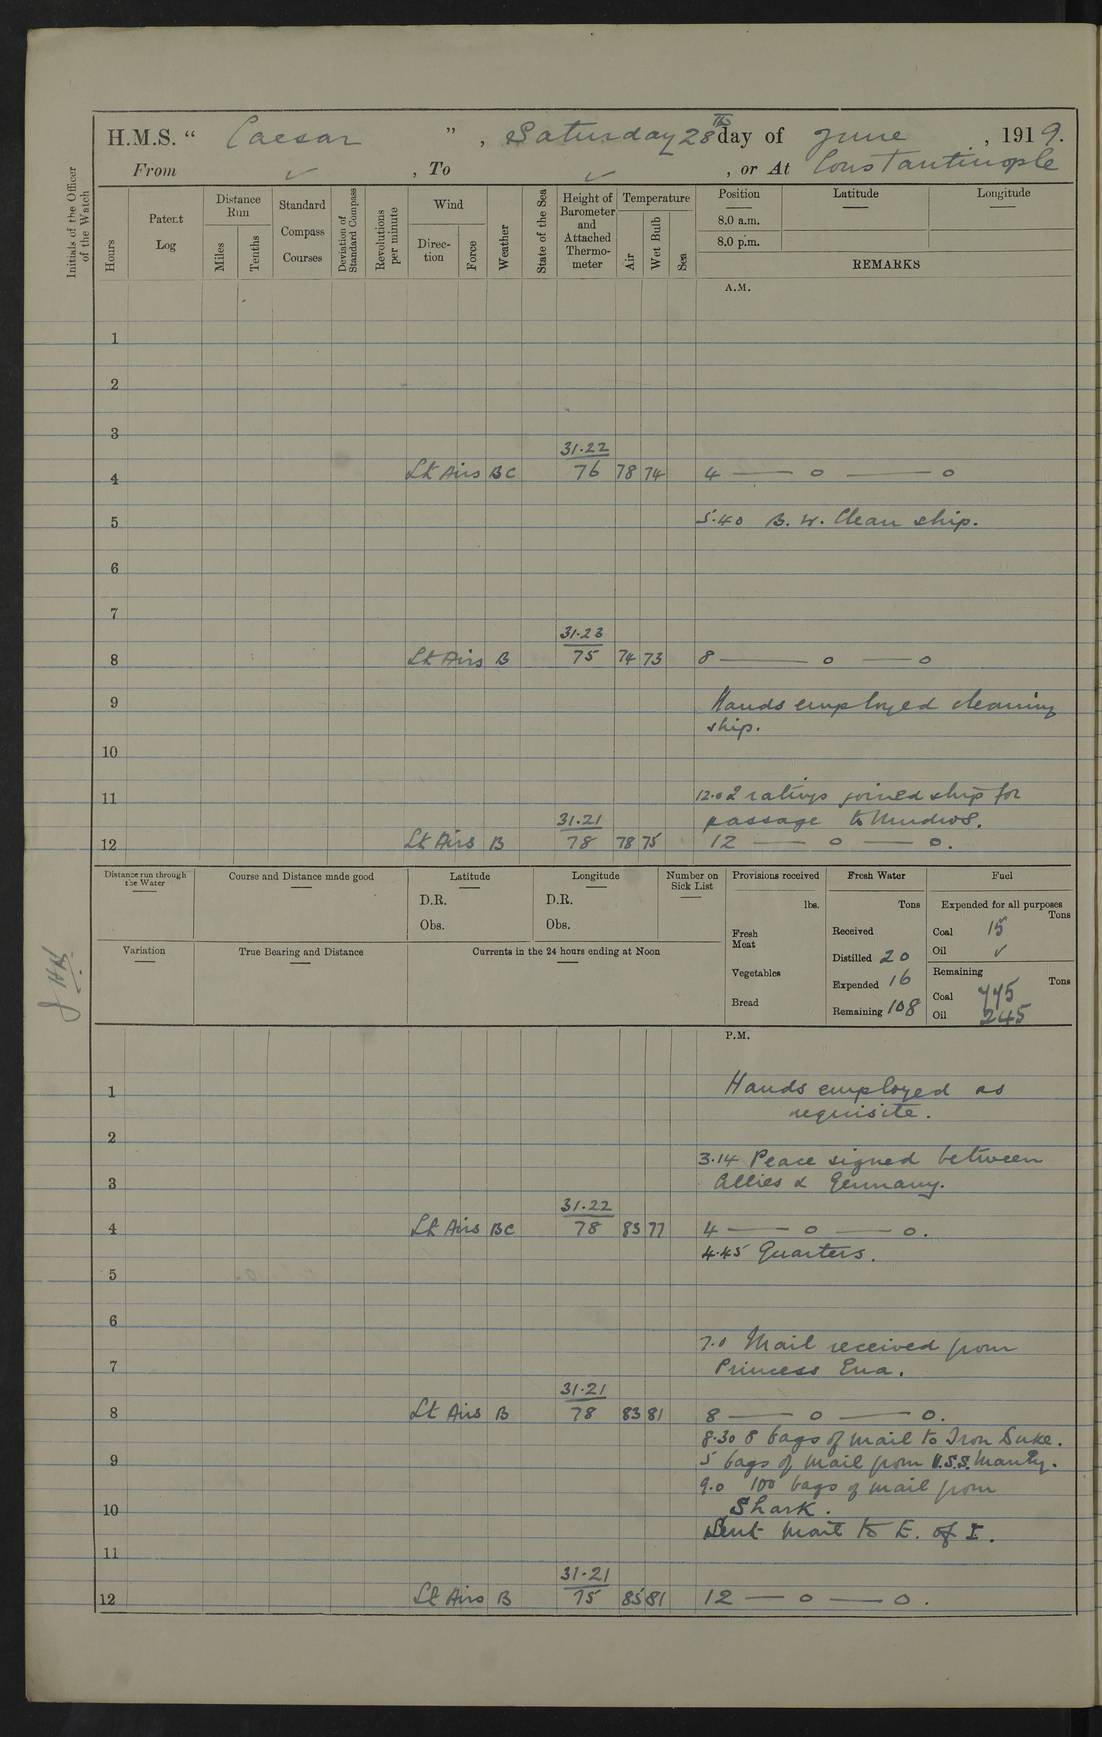 H.M.S. " Caesar ", Saturday 28th day of June, 1919.
From ✓, To ✓, or At Constantinople
Initials of the Officer of the Watch
Hours
Patent Log
Distance Run
Miles
Tenths
Standard Compass Courses
Deviation of Standard Compass
Revolutions per minute
Wind
Direction
Force
Weather
State of the Sea
Height of Barometer and Attached Thermometer
Temperature
Air
Wet Bulb
Sea
Position
Latitude
Longitude
8.0 a.m.
8.0 p.m.
REMARKS
A.M.
1
2
3
31.22
4 Lt Airs BC 76 78 74 4 — o — o
5 5.40 B. W. Clean ship.
6
7
31.23
8 Lt Airs B 75 74 73 8 — o — o
9 Hands employed cleaning
ship.
10
11 12.0 2 ratings joined ship for
31.21 passage to Mudros.
12 Lt Airs B 78 78 75 12 — o — o.
Distance run through the Water
Course and Distance made good
Latitude
D.R.
Obs.
Longitude
D.R.
Obs.
Number on Sick List
Provisions received
lbs.
Fresh Meat
Vegetables
Bread
Fresh Water
Tons
Received
Distilled 20
Expended 16
Remaining 108
Fuel
Expended for all purposes
Tons
Coal 15
Oil ✓
Remaining
Tons
Coal 775
Oil 245
Variation
True Bearing and Distance
Currents in the 24 hours ending at Noon
P.M.
1 Hands employed as
requisite.
2
3.14 Peace signed between
3 Allies & Germany.
31.22
4 Lt Airs BC 78 83 77 4 — o — o.
4.45 Quarters.
5
6
7.0 Mail received from
7 Princess Ena.
31.21
8 Lt Airs B 78 83 81 8 — o — o.
8.30 8 bags of mail to Iron Duke.
9 5 bags of mail from U.S.S. Manley.
9.0 100 bags of mail from
10 Shark.
Sent mail to E. of I.
11
31.21
12 Lt Airs B 75 85 81 12 — o — o.